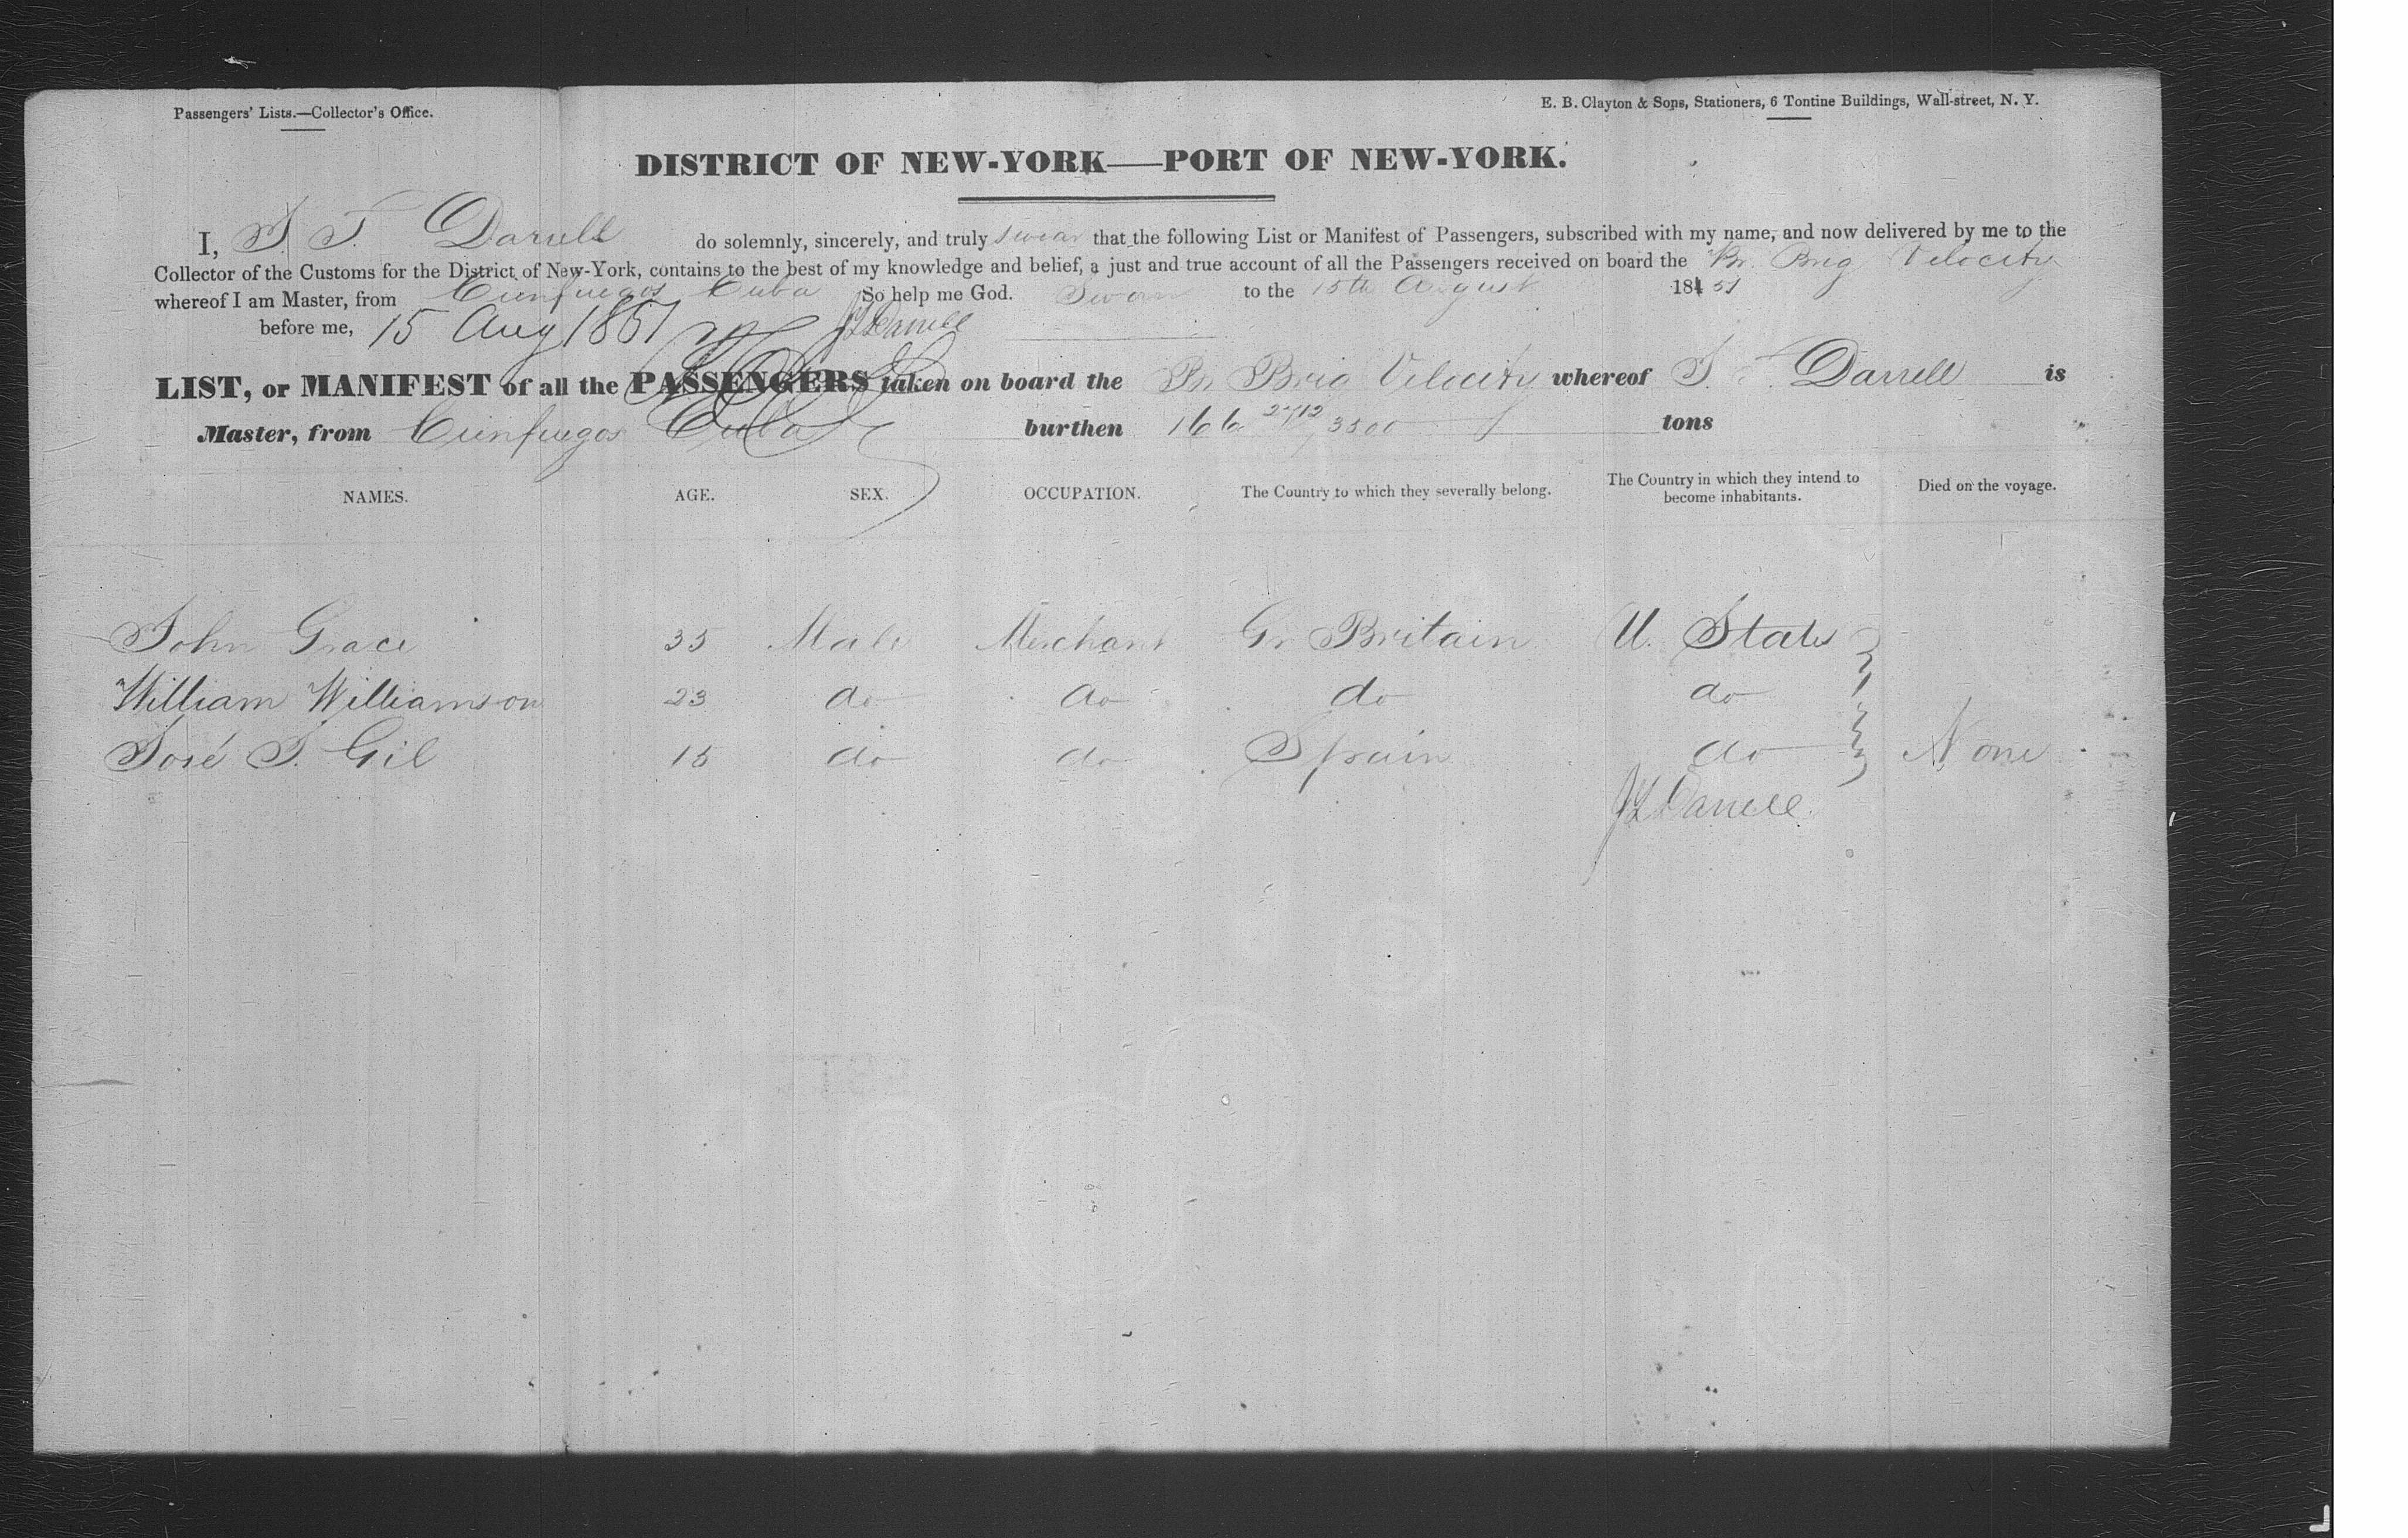 Passengers' Lists.—Collector's Office.
E. B. Clayton & Sons, Stationers, 6 Tontine Buildings, Wall-street, N. Y.
DISTRICT OF NEW-YORK—PORT OF NEW-YORK.
I, J. T. Darrell do solemnly, sincerely, and truly swear that the following List or Manifest of Passengers, subscribed with my name, and now delivered by me to the
Collector of the Customs for the District of New-York, contains to the best of my knowledge and belief, a just and true account of all the Passengers received on board the Br. Brig Velocity
whereof I am Master, from Cienfuegos Cuba So help me God. Sworn to the 15th August 1851
before me, 15 Aug 1851 J T Darrell
LIST, or MANIFEST of all the PASSENGERS taken on board the Br Brig Velocity whereof J. T. Darrell is
Master, from Cienfuegos Cuba burthen 166 tons
NAMES. AGE. SEX. OCCUPATION. The Country to which they severally belong. The Country in which they intend to become inhabitants. Died on the voyage.
John Grace 35 Male Merchant Gr Britain U. States
William Williamson 23 do do do do
José J. Gil 15 do do Spain do None
J T Darrell